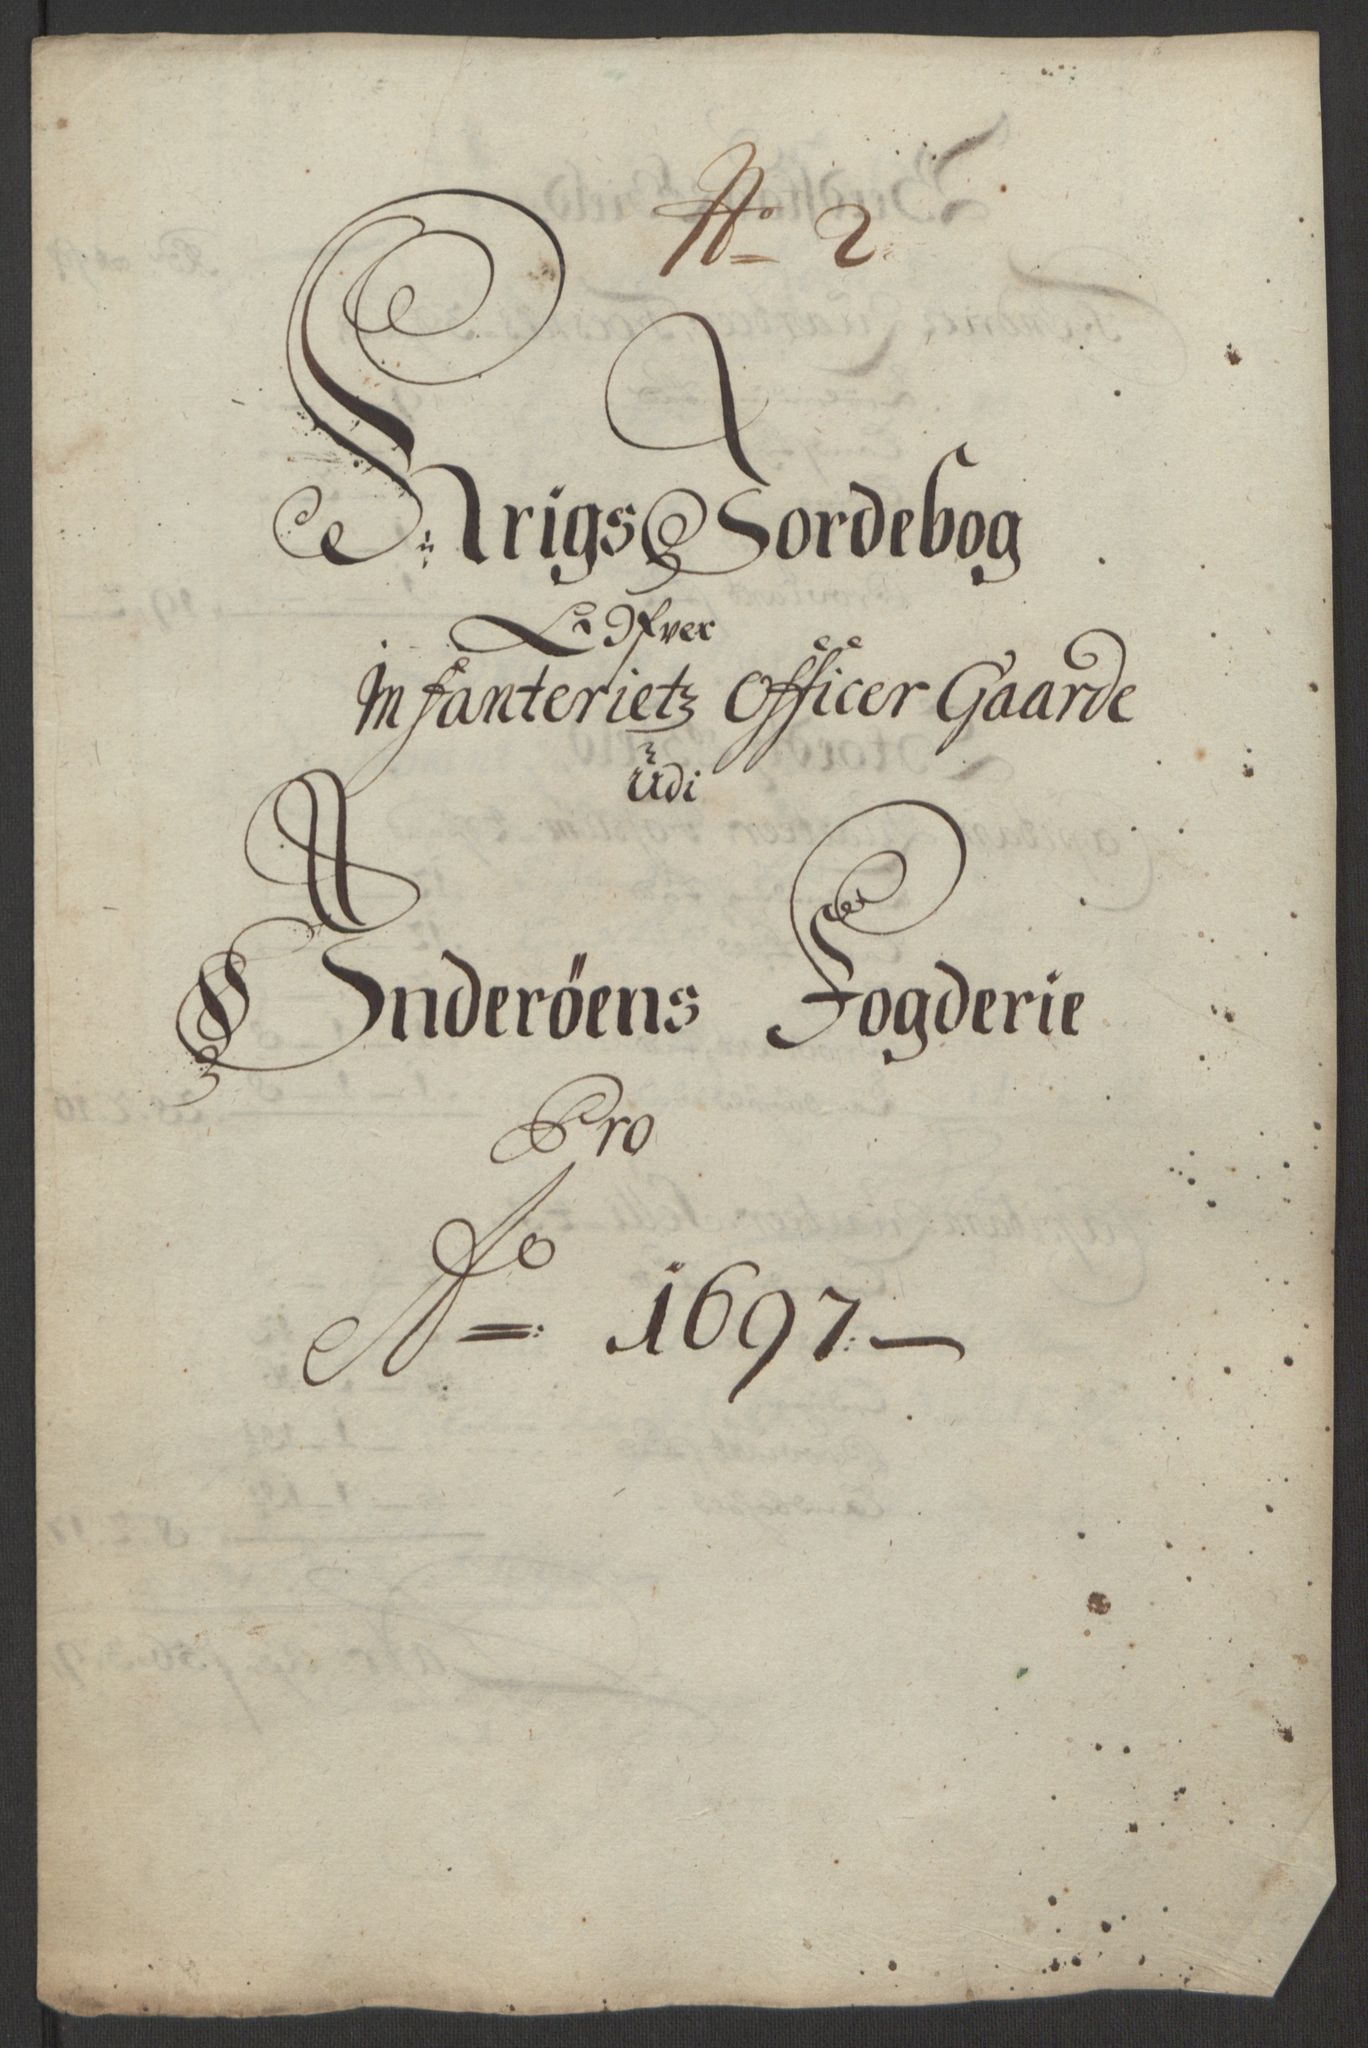 No 2
Krigs Jordebog
Ofver
Infanterietz Officer Gaarde
Udi
Inderöens Fogderie
Pro
Ao 1697